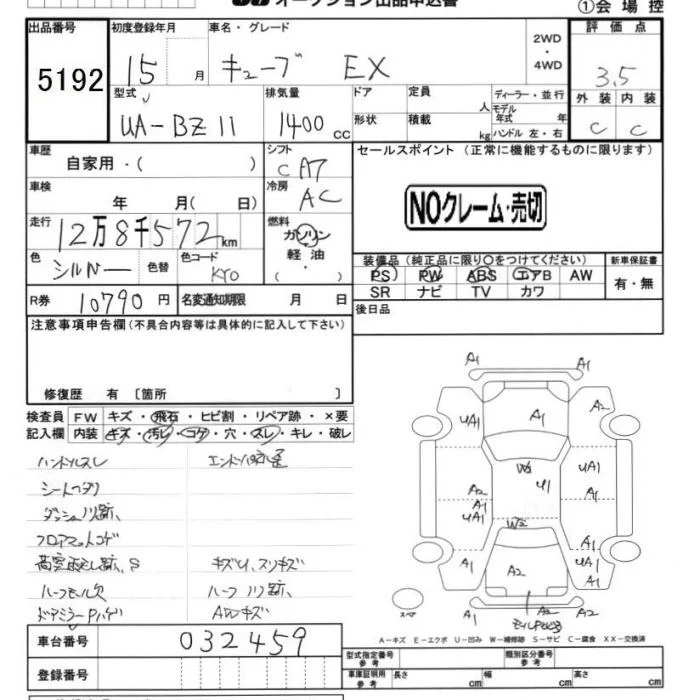 オークション出品申込書
①会場控
出品番号 初度登録年月 車名・グレード 2WD ・ 4WD 評価点
5192 15 月 キューブ EX 3.5
型式 排気量 ドア 定員 人 ディーラー・並行 外装 内装
UA-BZ11 1400 cc 形状 積載 kg モデル年式 年 ハンドル 左・右 C C
車歴 自家用・( ) シフト CA7 セールスポイント (正常に機能するものに限ります)
車検 年 月( 日) 冷房 AC
NOクレーム・売切
走行 12万8千572km 燃料 ガソリン・軽油・( )
色 シルバー 色替 色コード KYO
装備品(純正品に限り○をつけてください) 新車保証書
PS PW ABS エアB AW 有・無
SR ナビ TV カワ
R券 10790円 名変通知期限 月 日 後日品
注意事項申告欄(不具合内容等は具体的に記入して下さい)
修復歴 有 〔箇所 〕
検査員 FW キズ・飛石・ヒビ割・リペア跡・×要
記入欄 内装 キズ・汚レ・コゲ・穴・スレ・キレ・破レ
ハンドルスレ
シートヘタリ
フロアマットコゲ
キズU、スリキズ
AWキズ
A1 A1
UA1 A1 A2
W2 U1 UA1
A2 A1 A1
UA1 W2
A1 A2 A1 UA1 A1
A1 A2 A2
スペア
A-キズ E-エクボ U-凹み W-補修跡 S-サビ C-腐食 XX-交換済
車台番号 032459
型式指定番号 参考 類別区分番号 参考
登録番号 車庫証明用 参考 長さ cm 幅 cm 高さ cm